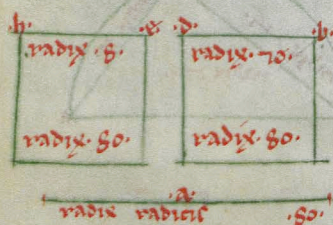 .h. .e. .d. .b.
radix .8. radix .70.
radix .80. radix .80.
.a.
radix radicis .80.